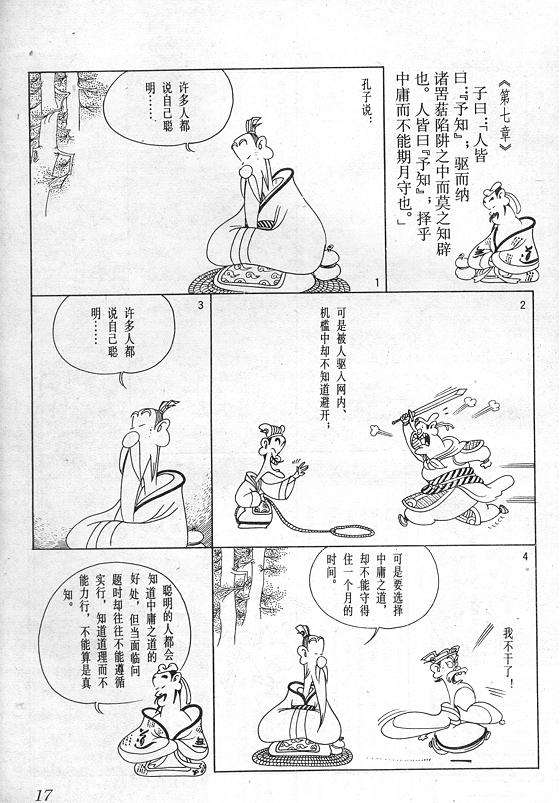 《第七章》
子曰：「人皆
曰：『予知』；驱而纳
诸罟蓜陷阱之中而莫之知辟
也。人皆曰『予知』；择乎
中庸而不能期月守也。」
孔子说：
许多人都
说自己聪
明……
1
2
可是被人驱入网内、
机槛中却不知道避开；
3
许多人都
说自己聪
明……
4
可是要选择
中庸之道，
却不能守得
住一个月的
时间。
我不干了！
聪明的人都会
知道中庸之道的
好处，但当面临问
题时却往往不能遵循
实行，知道道理而不
能力行，不能算是真
知。
道
道
17